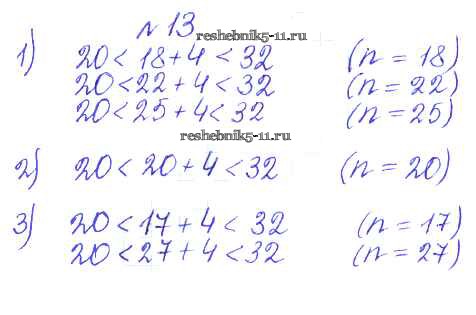 № 13
reshebnik5-11.ru
1) 20 < 18 + 4 < 32 (n = 18)
20 < 22 + 4 < 32 (n = 22)
20 < 25 + 4 < 32 (n = 25)
reshebnik5-11.ru
2) 20 < 20 + 4 < 32 (n = 20)
3) 20 < 17 + 4 < 32 (n = 17)
20 < 27 + 4 < 32 (n = 27)